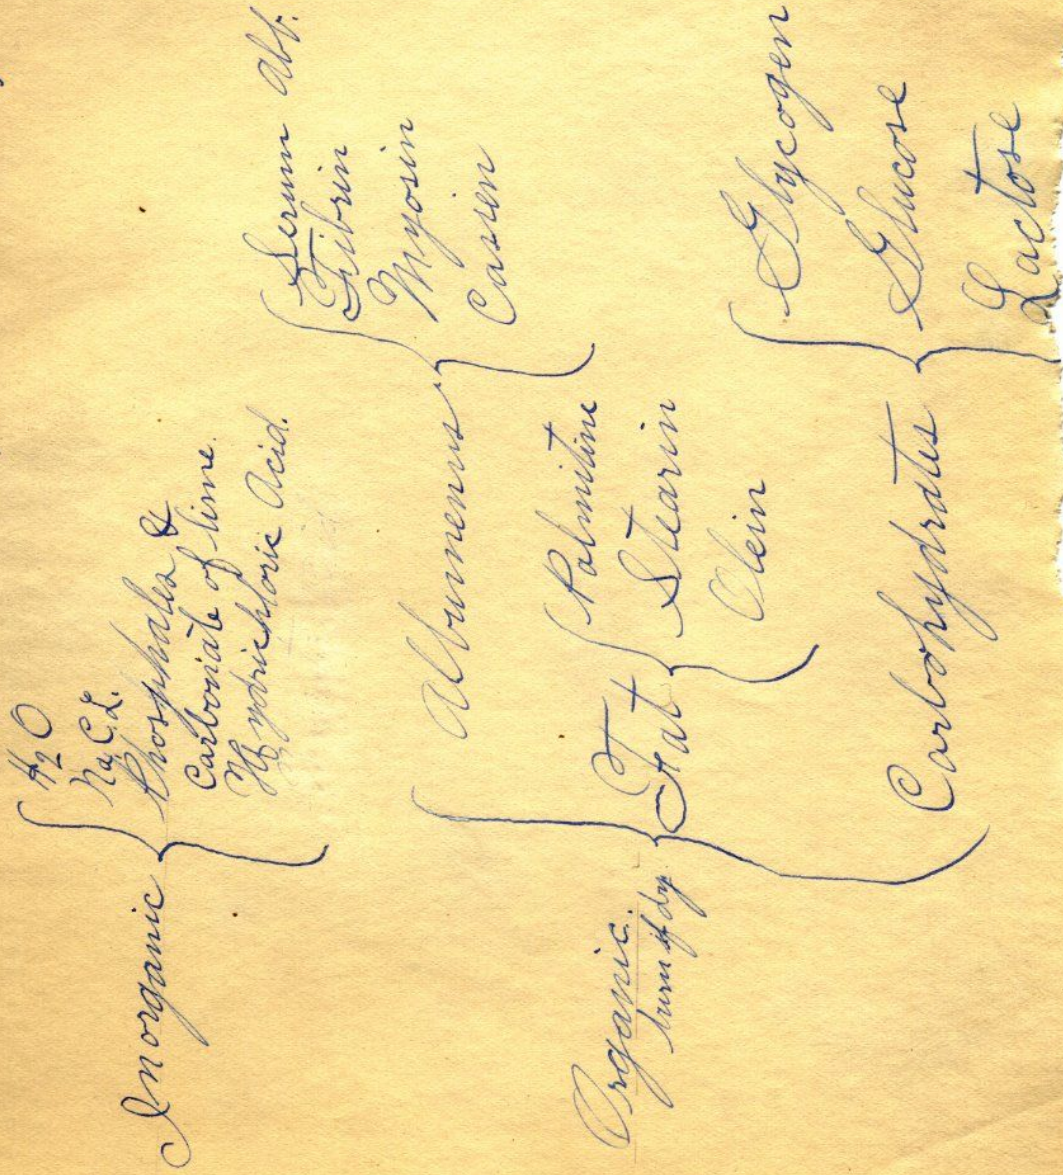 Inorganic
H2O
Na C.L.
Phosphates &
Carbonate of lime.
Hydrichloric Acid.
Organic.
burn if dry
Albumenus
Serum Alb.
Fibrin
Myosin
Casien
Fat
Palmitine
Stearin
Olein
Carbohydrates
Glycogen
Glucose
Lactose